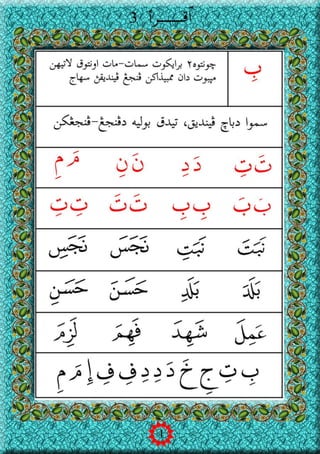 اقـــرأ 3
بِ
چونتوه٢ برايكوت سمات-مات اونتوق لاتيهن
مڽبوت دان ممبيذاكن ڤنجڠ ڤينديقڽ سهاج
سموا دباچ ڤينديق، تيدق بوليه دڤنجڠ-ڤنجڠكن
تَ تِ دَ دِ نَ نِ مَ مِ
بَ بَ بِ بِ تَ تَ تِ تِ
نَبَتَ نَبَتِ نَجَسَ نَجَسِ
بَلَدَ بَلَدِ حَسَنَ حَسَنِ
عَمِلَ شَهِدَ فَهِمَ لَزِمَ
بِ تِ جِ خَ دَ دِ دِ فِ فِ إِ مَ مِ
1